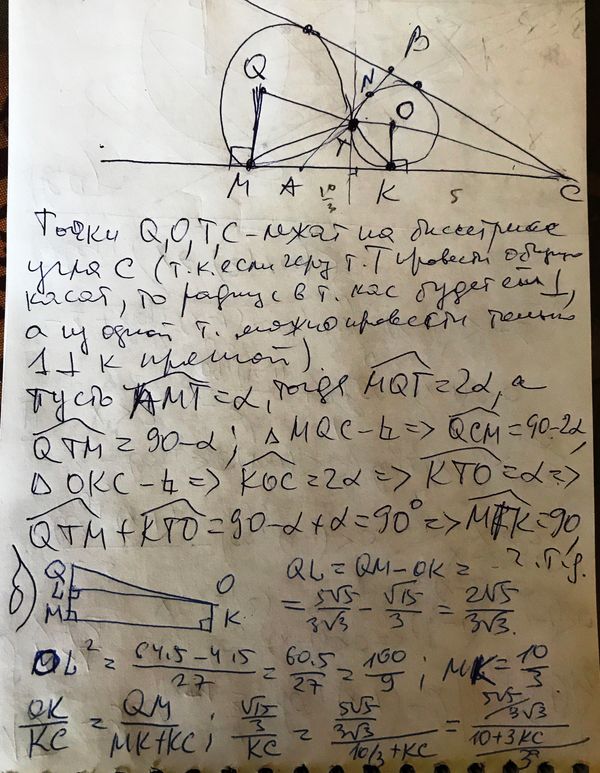 Q N B O
T
M A 10/3 K 5 C
Точки Q, O, T, C - лежат на биссектрисе
угла C (т.к. если через т. T провести общую
касат, то радиус в т. кас будет ей ⊥,
а из одной т. можно провести только
1 ⊥ к прямой)
Пусть AMT = α, тогда MQT = 2α, а
QTM = 90-α; Δ MQC - ⊾ => QCM = 90-2α,
Δ OKC - ⊾ => KOC = 2α => KTO = α =>
QTM + KTO = 90-α+α = 90° => MTK = 90,
ч.т.д.
б) Q L M O K QL = QM - OK =
= 5√5/3√3 - √15/3 = 2√5/3√3.
OL² = (64·5 - 4·5)/27 = 60·5/27 = 100/9; MK = 10/3
OK/KC = QM/(MK+KC); (√15/3)/KC = (5√5/3√3)/(10/3+KC) = (5√5/3√3)/((10+3KC)/3)